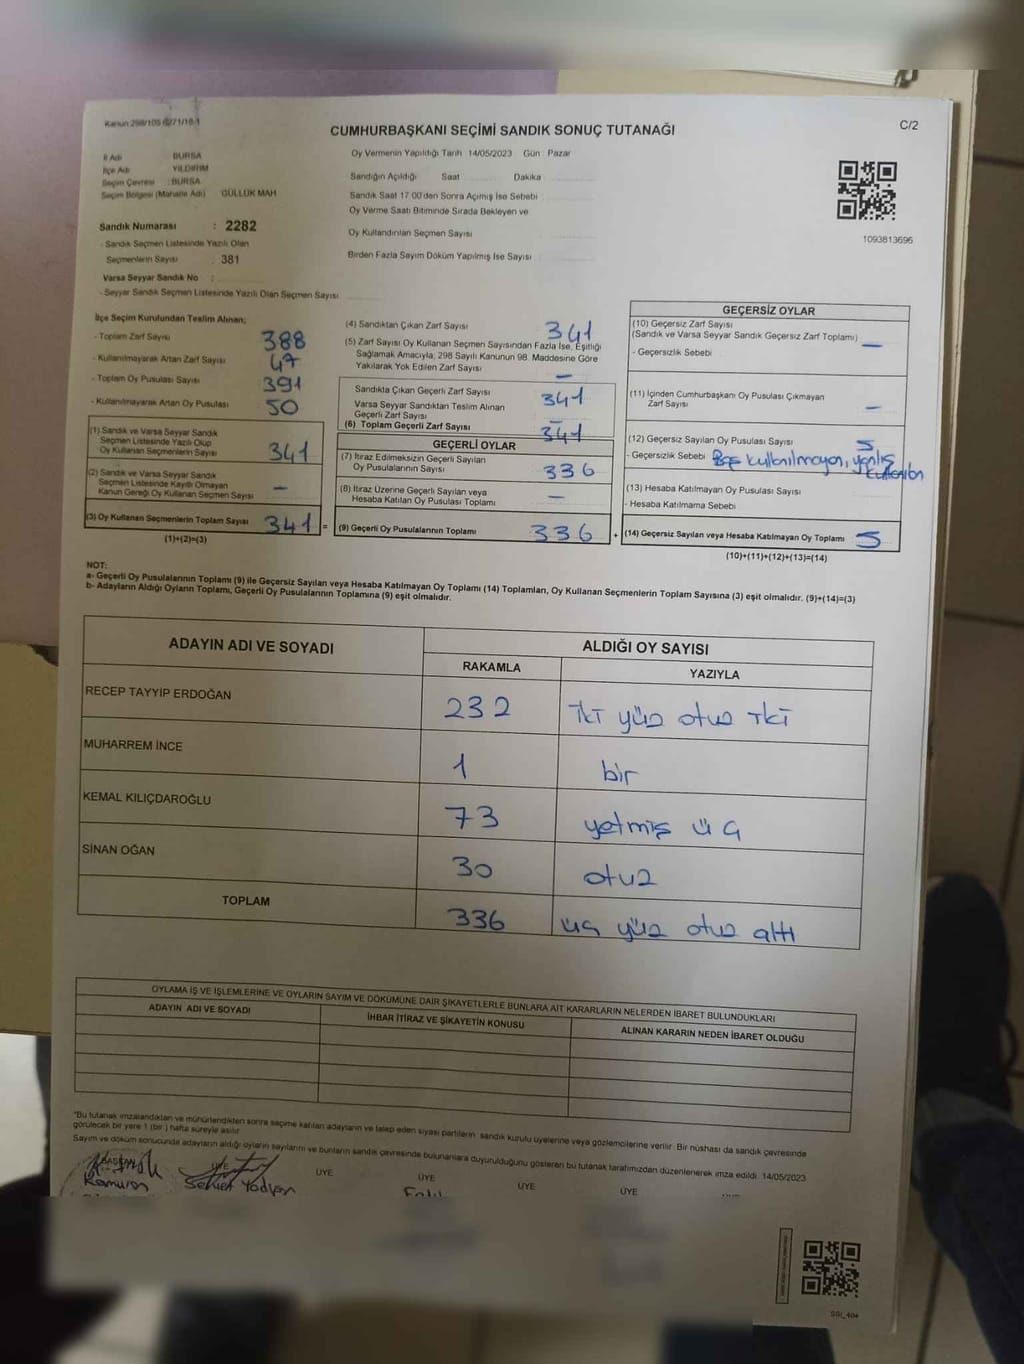 Kanun 298/105 6271/18-1
CUMHURBAŞKANI SEÇİMİ SANDIK SONUÇ TUTANAĞI
C/2
İl Adı BURSA
İlçe Adı YILDIRIM
Seçim Çevresi : BURSA
Seçim Bölgesi (Mahalle Adı) GÜLLÜK MAH
Sandık Numarası : 2282
- Sandık Seçmen Listesinde Yazılı Olan
Seçmenlerin Sayısı : 381
Varsa Seyyar Sandık No :
- Seyyar Sandık Seçmen Listesinde Yazılı Olan Seçmen Sayısı
Oy Vermenin Yapıldığı Tarih 14/05/2023 Gün : Pazar
Sandığın Açıldığı Saat Dakika
Sandık Saat 17:00'den Sonra Açımış İse Sebebi
Oy Verme Saati Bitiminde Sırada Bekleyen ve
Oy Kullandırılan Seçmen Sayısı
Birden Fazla Sayım Döküm Yapılmış İse Sayısı
1093813696
İlçe Seçim Kurulundan Teslim Alınan;
- Toplam Zarf Sayısı 388
- Kullanılmayarak Artan Zarf Sayısı 47
- Toplam Oy Pusulası Sayısı 391
- Kullanılmayarak Artan Oy Pusulası 50
(1) Sandık ve Varsa Seyyar Sandık
Seçmen Listesinde Yazılı Olup
Oy Kullanan Seçmenlerin Sayısı 341
(2) Sandık ve Varsa Seyyar Sandık
Seçmen Listesinde Kayıtlı Olmayan
Kanun Gereği Oy Kullanan Seçmen Sayısı -
(3) Oy Kullanan Seçmenlerin Toplam Sayısı 341 =
(1)+(2)=(3)
(4) Sandıktan Çıkan Zarf Sayısı 341
(5) Zarf Sayısı Oy Kullanan Seçmen Sayısından Fazla İse, Eşitliği
Sağlamak Amacıyla, 298 Sayılı Kanunun 98. Maddesine Göre
Yakılarak Yok Edilen Zarf Sayısı -
Sandıkta Çıkan Geçerli Zarf Sayısı 341
Varsa Seyyar Sandıktan Teslim Alınan
Geçerli Zarf Sayısı -
(6) Toplam Geçerli Zarf Sayısı 341
GEÇERLİ OYLAR
(7) İtiraz Edilmeksizin Geçerli Sayılan
Oy Pusulalarının Sayısı 336
(8) İtiraz Üzerine Geçerli Sayılan veya
Hesaba Katılan Oy Pusulası Toplamı -
(9) Geçerli Oy Pusulalarının Toplamı 336 +
GEÇERSİZ OYLAR
(10) Geçersiz Zarf Sayısı
(Sandık ve Varsa Seyyar Sandık Geçersiz Zarf Toplamı) -
- Geçersizlik Sebebi
(11) İçinden Cumhurbaşkanı Oy Pusulası Çıkmayan
Zarf Sayısı -
(12) Geçersiz Sayılan Oy Pusulası Sayısı 5
- Geçersizlik Sebebi Boş kullanılmayan, yanlış
kullanılan
(13) Hesaba Katılmayan Oy Pusulası Sayısı
- Hesaba Katılmama Sebebi
(14) Geçersiz Sayılan veya Hesaba Katılmayan Oy Toplamı 5
(10)+(11)+(12)+(13)=(14)
NOT:
a- Geçerli Oy Pusulalarının Toplamı (9) ile Geçersiz Sayılan veya Hesaba Katılmayan Oy Toplamı (14) Toplamları, Oy Kullanan Seçmenlerin Toplam Sayısına (3) eşit olmalıdır. (9)+(14)=(3)
b- Adayların Aldığı Oyların Toplamı, Geçerli Oy Pusulalarının Toplamına (9) eşit olmalıdır.
ADAYIN ADI VE SOYADI ALDIĞI OY SAYISI
RAKAMLA YAZIYLA
RECEP TAYYİP ERDOĞAN 232 iki yüz otuz iki
MUHARREM İNCE 1 bir
KEMAL KILIÇDAROĞLU 73 yetmiş üç
SİNAN OĞAN 30 otuz
TOPLAM 336 üç yüz otuz altı
OYLAMA İŞ VE İŞLEMLERİNE VE OYLARIN SAYIM VE DÖKÜMÜNE DAİR ŞİKAYETLERLE BUNLARA AİT KARARLARIN NELERDEN İBARET BULUNDUKLARI
ADAYIN ADI VE SOYADI İHBAR İTİRAZ VE ŞİKAYETİN KONUSU ALINAN KARARIN NEDEN İBARET OLDUĞU
"Bu tutanak imzalandıktan ve mühürlendikten sonra seçime katılan adayların ve talep eden siyasi partilerin sandık kurulu üyelerine veya gözlemcilerine verilir. Bir nüshası da sandık çevresinde
görülecek bir yere 1 (bir) hafta süreyle asılır.
Sayım ve döküm sonucunda adayların aldığı oyların sayılarını ve bunların sandık çevresinde bulunanlara duyurulduğunu gösteren bu tutanak tarafımızdan düzenlenerek imza edildi. 14/05/2023
BAŞKAN ÜYE ÜYE ÜYE ÜYE ÜYE
SSI_404